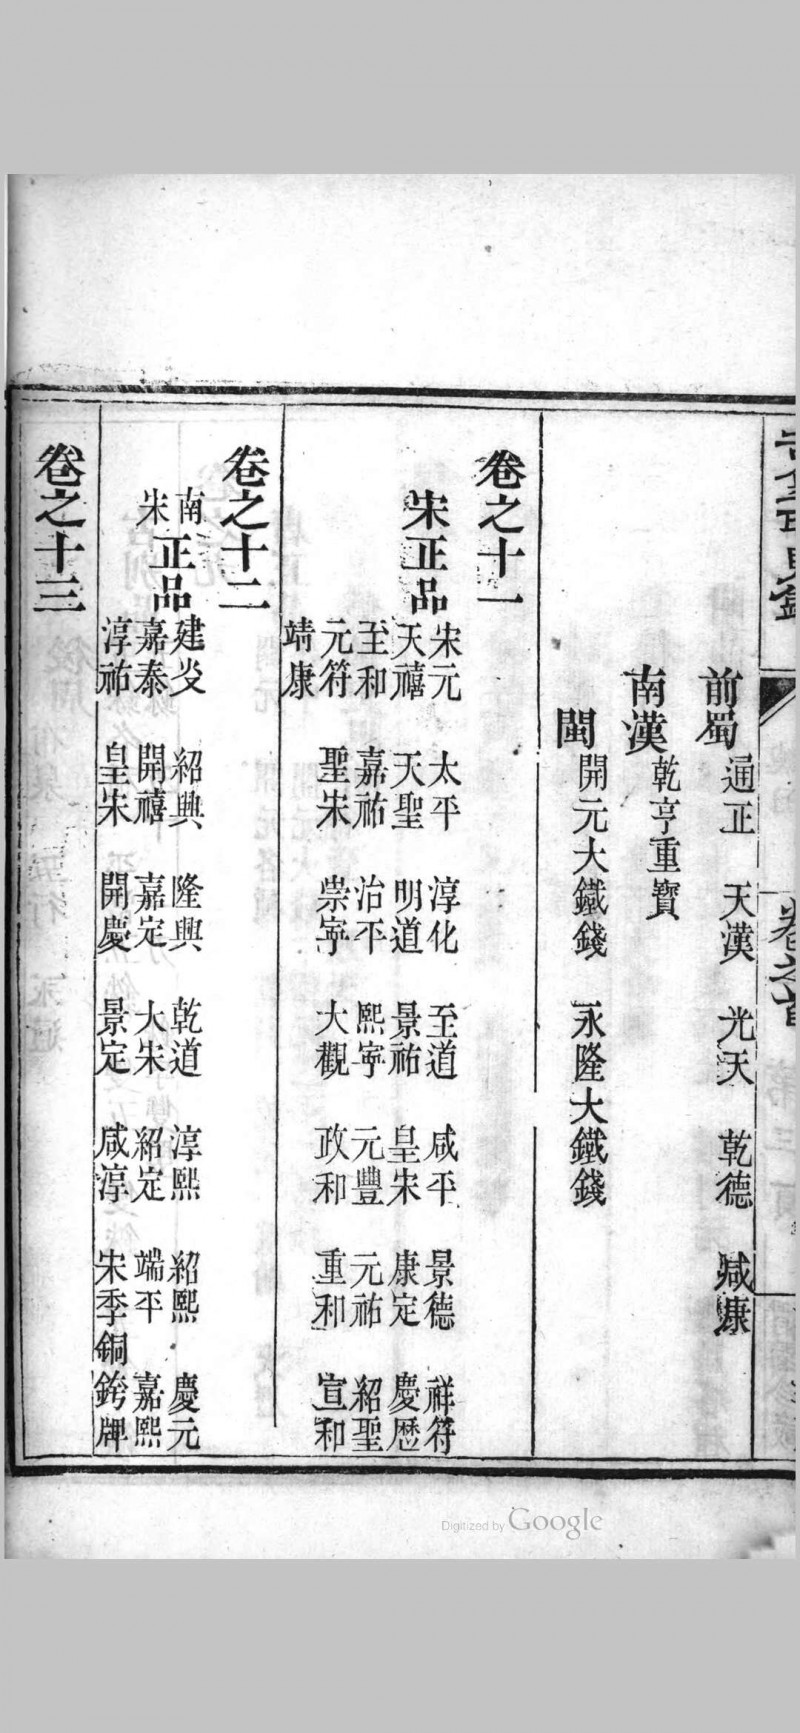 前蜀 通正 天漢 光天 乾德 咸康
南漢 乾亨重寶
閩 開元大鐵錢 永隆大鐵錢
卷之十一
宋正品
宋元 太平 淳化 至道 咸平 景德 祥符
天禧 天聖 明道 景祐 皇宋 康定 慶歷
至和 嘉祐 治平 熙寧 元豐 元祐 紹聖
元符 聖宋 崇寧 大觀 政和 重和 宣和
靖康
卷之十二
南宋正品
建炎 紹興 隆興 乾道 淳熙 紹熙 慶元
嘉泰 開禧 嘉定 大宋 紹定 端平 嘉熙
淳祐 皇宋 開慶 景定 咸淳 宋季銅銙牌
卷之十三
Digitized by Google